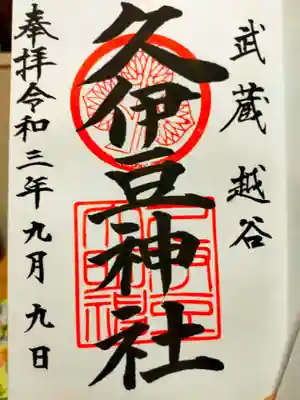 武蔵越谷
久伊豆神社
奉拝令和三年九月九日